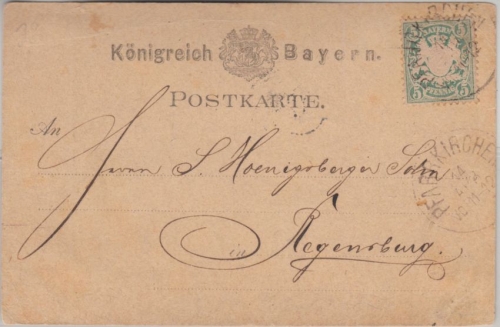 Königreich Bayern.
POSTKARTE.
An
Herrn S. Hoenigsberger Sohn
in Regensburg.
5 5
PFARRKIRCHEN